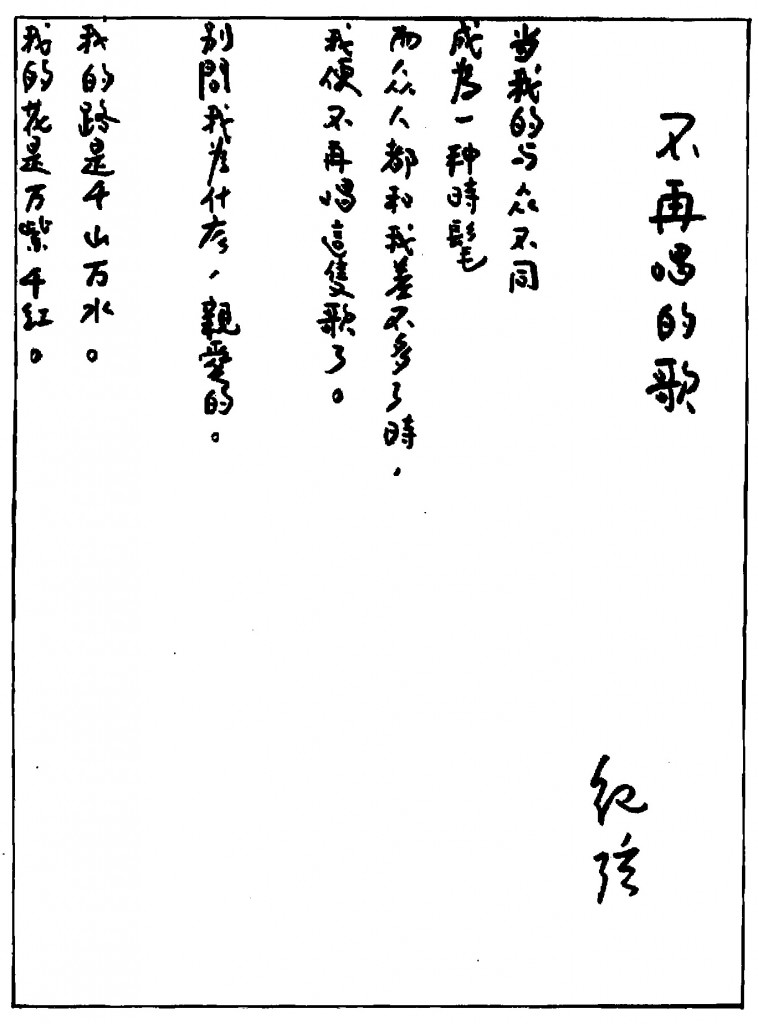 不再唱的歌
紀弦
当我的与众不同
成為一种時髦
而众人都和我差不多了時，
我便不再唱這隻歌了。
別問我為什麼，親愛的。
我的路是千山万水。
我的花是万紫千红。